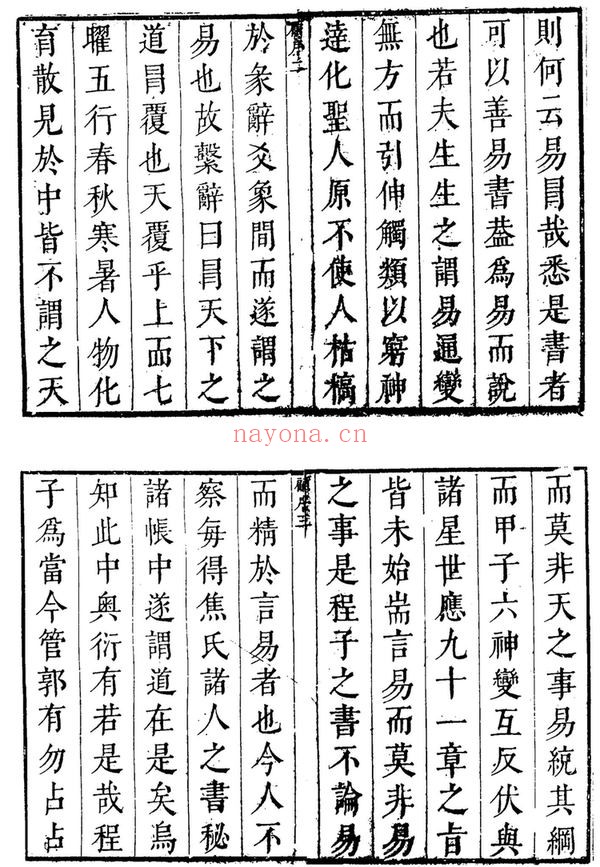 則何云易冐哉悉是書者
可以善易書葢爲易而說
也若夫生生之謂易通變
無方而引伸觸類以窮神
達化聖人原不使人枯槁
顧序二
於彖辭爻象間而遂謂之
易也故繫辭曰冐天下之
道冐覆也天覆乎上而七
曜五行春秋寒暑人物化
育散見於中皆不謂之天
nayona.cn
而莫非天之事易統其綱
而甲子六神變互反伏與
諸星世應九十一章之旨
皆未始耑言易而莫非易
之事是程子之書不論易
顧序三
而精於言易者也今人不
察每得焦氏諸人之書秘
諸帳中遂謂道在是矣烏
知此中奧衍有若是哉程
子爲當今管郭有勿占占